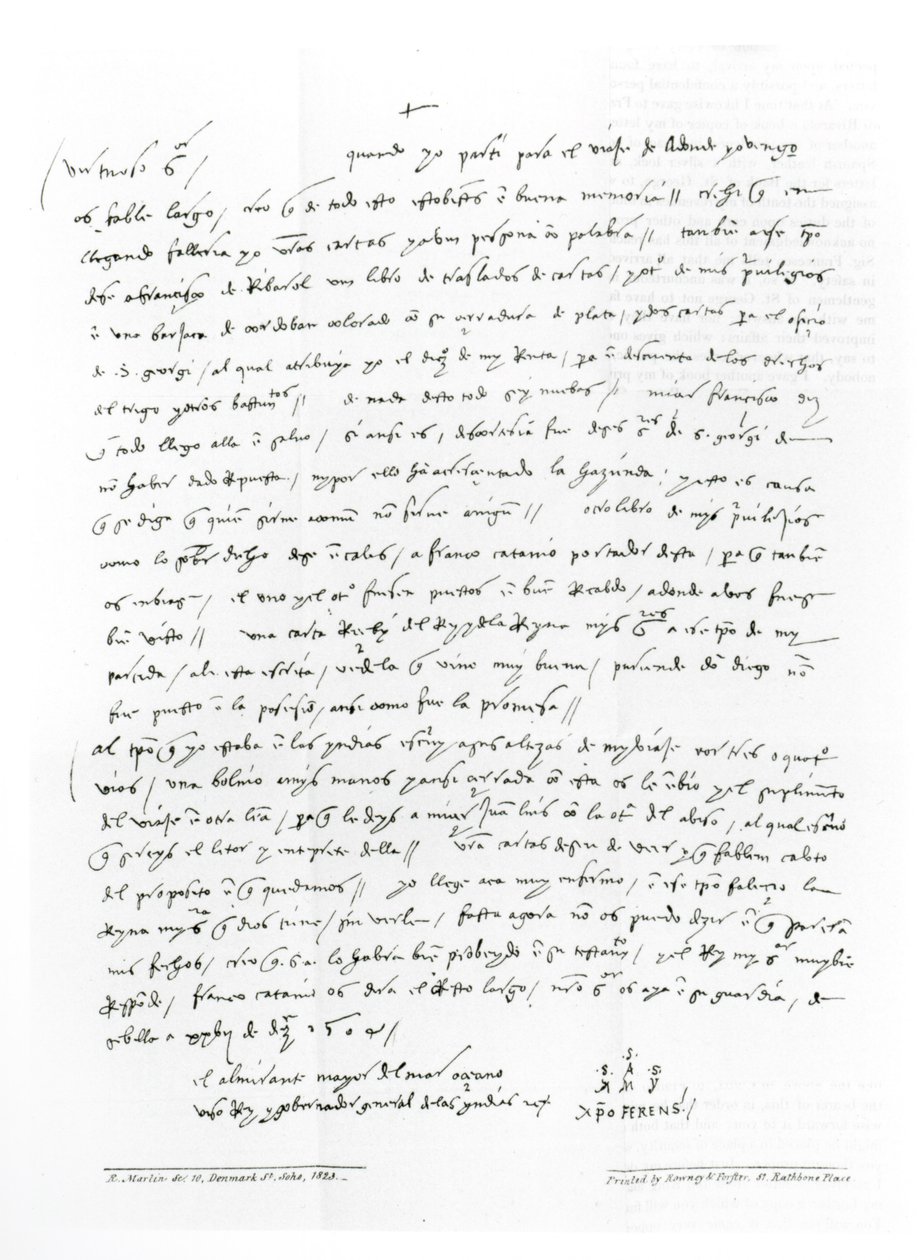 +
virtuoso s.or / quando yo partí para el viaje de adonde yo vengo
os fablé largo / creo q̃ de todo esto estobistes ẽ buena memoria // crehí q̃ en
llegando fallería yo vr̃as cartas y abun persona cõ palabra // tanbiẽ a ese tp̃o
dexe a francisco de Ribarol un libro de traslados de cartas / y otº de mis privilegios
ẽ una barjaca de cordoban colorado cõ su cerradura de plata / y dos cartas pa el oficio
de .S. georgi / al qual atribuya yo el diezº de my Renta / pa ẽ descuenta de los drechos
del trigo y otros bastimtos // de nada desto todo sey nuebas // miçer francisco diz
q̃ todo llego alla ẽ salvo / si ansi es, descortesia fue deses s.res de s. georgi de
nõ haber dado Rpuesta / ny por ello hã acreçentado la hazienda / y esto es causa
q̃ se diga q̃ quiẽ sirve a comũ nõ sirve a nigũ // otro libro de mys privilejios
como lo sobre dicho dexe ẽ calis / a franco catanio portador desta / pa q̃ tanbiẽ
os enbiase / el uno y el otº fuesen puestos ẽ buẽ Recabdo / adonde a vos fuese
biẽ visto // una carta Recebí del Rey y de la Reyna mys s.res a ese tp̃o de my
partida / ali esta escrita / vedela q̃ vino muy buena / puriende dõ diego nõ
fue puesto ẽ la posesiõ / ansi como fue la promesa //
al tp̃o q̃ yo estaba ẽ las yndias escriví a sus altezas de my viaje por tres o quatº
vias / una bolvio a mys manos y ansi cerrada cõ esta os le ẽbio y el suplimẽto
del viaje ẽ otra letra / pa q̃ le deys a miçer Juã luis cõ la otª del abiso / al qual escrivo
q̃ sereys el letor y enterprete della // vr̃as cartas deseo de veer y q̃ fablem cabto
del proposito ẽ q̃ quedamos // yo llegé aca muy enfermo / ẽ ese tp̃o falecio la
Reyna my s.ra q̃ dios tiene / sin verla / fasta agora nõ os puedo dezir ẽ q̃ pararãn
mis fechos / creo q̃ s.a. lo habra biẽ probeydo ẽ su testamto / y el Rey my s.or muy biẽ
Respõde / franco catanio os dira el Resto largo / nr̃o s.or os aya ẽ su guardia / de
sebilla a xxvii de diz̃ 1504 //
el almirante mayor del mar oceano
viso Rey y gobernador general de las yndias etc
.S.
.S. A .S.
X M Y
Xp̃o FERENS /
R. Martin Sc. 10, Denmark St. Soho, 1823.
Printed by Rowney & Forster, 51, Rathbone Place.